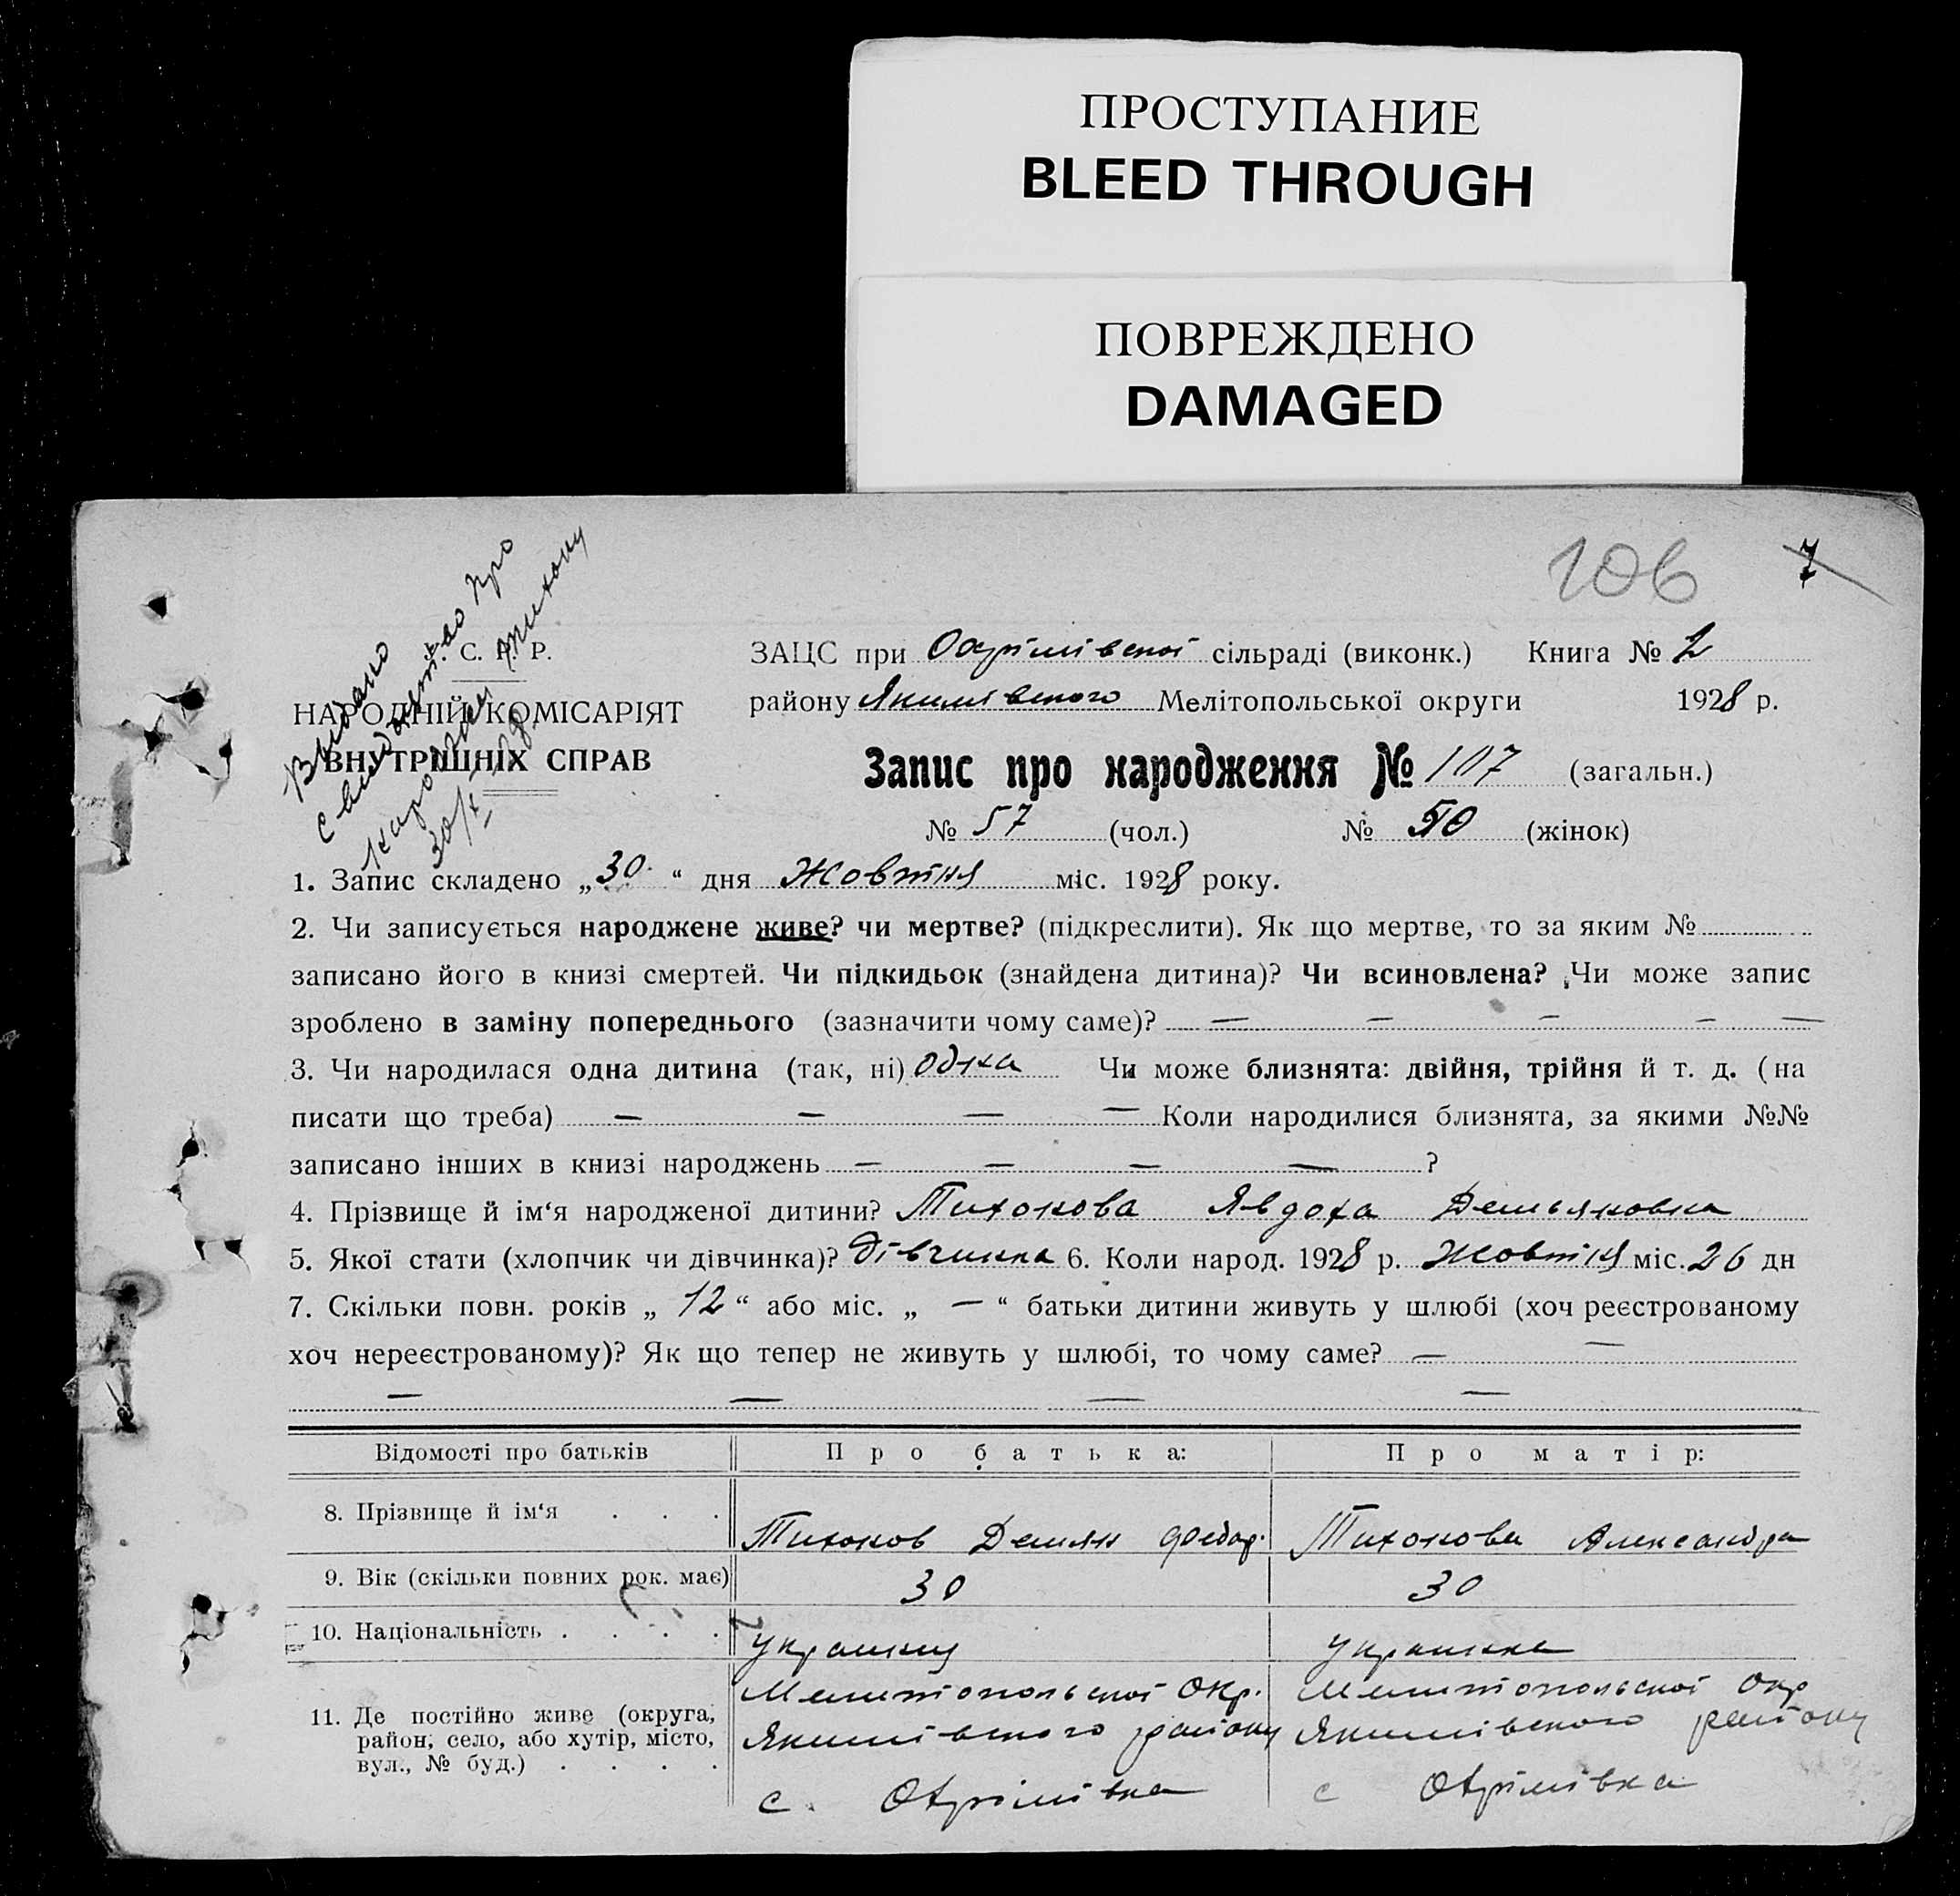 ПРОСТУПАНИЕ
BLEED THROUGH
ПОВРЕЖДЕНО
DAMAGED
106 7
Видано
свидоцтво про
народжен
30/X-28
С. Р. Р.
НАРОДНІЙ КОМІСАРІЯТ
ВНУТРІШНІХ СПРАВ
ЗАЦС при Охрімівської сільраді (виконк.) Книга № 2
району Якимівського Мелітопольської округи 1928 р.
Запис про народження № 107 (загальн.)
№ 57 (чол.) № 50 (жінок)
1. Запис складено „30“ дня Жовтня міс. 1928 року.
2. Чи записується народжене живе? чи мертве? (підкреслити). Як що мертве, то за яким №
записано його в книзі смертей. Чи підкидьок (знайдена дитина)? Чи всиновлена? Чи може запис
зроблено в заміну попереднього (зазначити чому саме)? — — — — —
3. Чи народилася одна дитина (так, ні) одна Чи може близнята: двійня, трійня й т. д. (на
писати що треба) — — — — Коли народилися близнята, за якими №№
записано інших в книзі народжень — — — — ?
4. Прізвище й ім‘я народженої дитини? Тихонова Явдоха Демьяновна
5. Якої стати (хлопчик чи дівчинка)? Дівчинка 6. Коли народ. 1928 р. Жовтня міс. 26 дн
7. Скільки повн. років „ 12 “ або міс. „ — “ батьки дитини живуть у шлюбі (хоч реєстрованому
хоч нереєстрованому)? Як що тепер не живуть у шлюбі, то чому саме? — —
— — — —
Відомості про батьків Про батька: Про матір:
8. Прізвище й ім‘я . . . Тихонов Демян Федор. Тихонова Александра
9. Вік (скільки повних рок. має) 30 30
10. Національність . . . . украинец украинка
11. Де постійно живе (округа, район, село, або хутір, місто, вул., № буд.) . . . .
Мелитопольської Окр. Мелитопольської Окр
Якимівського району Якимівського району
с. Охрімівка с Охрімівка